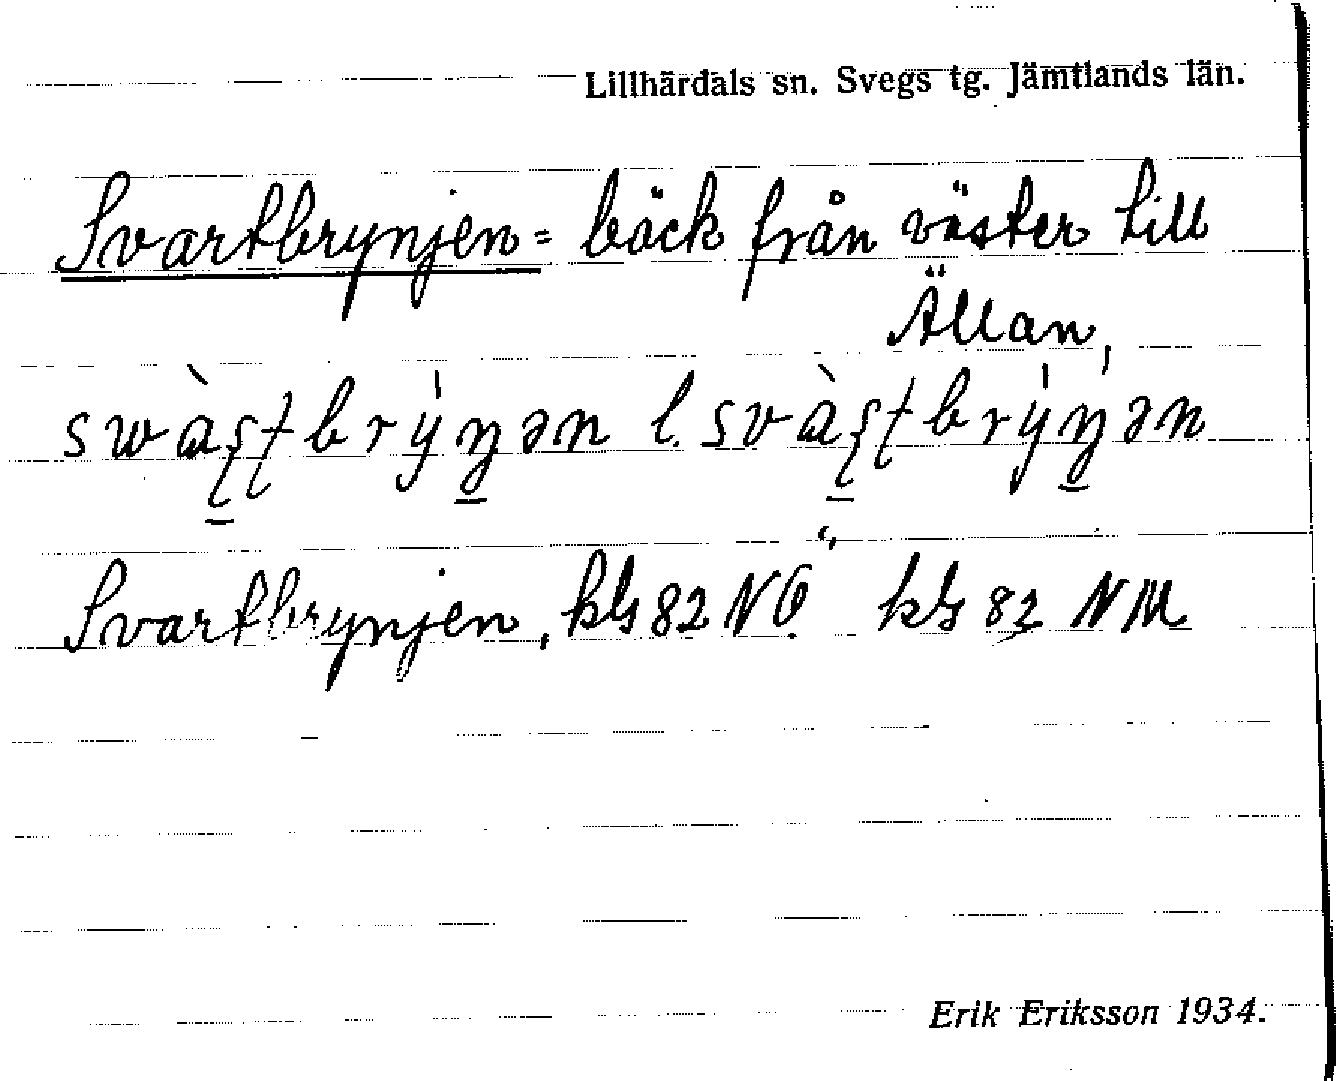 Lillhärdals sn. Svegs tg. Jämtlands län.
Svartbrynjen = bäck från väster till
Ällan,
swàʂʈbrýŋən l. svàʂʈbrýŋən
Svartbrynjen, kbs 82 NÖ kbs 82 NM
Erik Eriksson 1934.